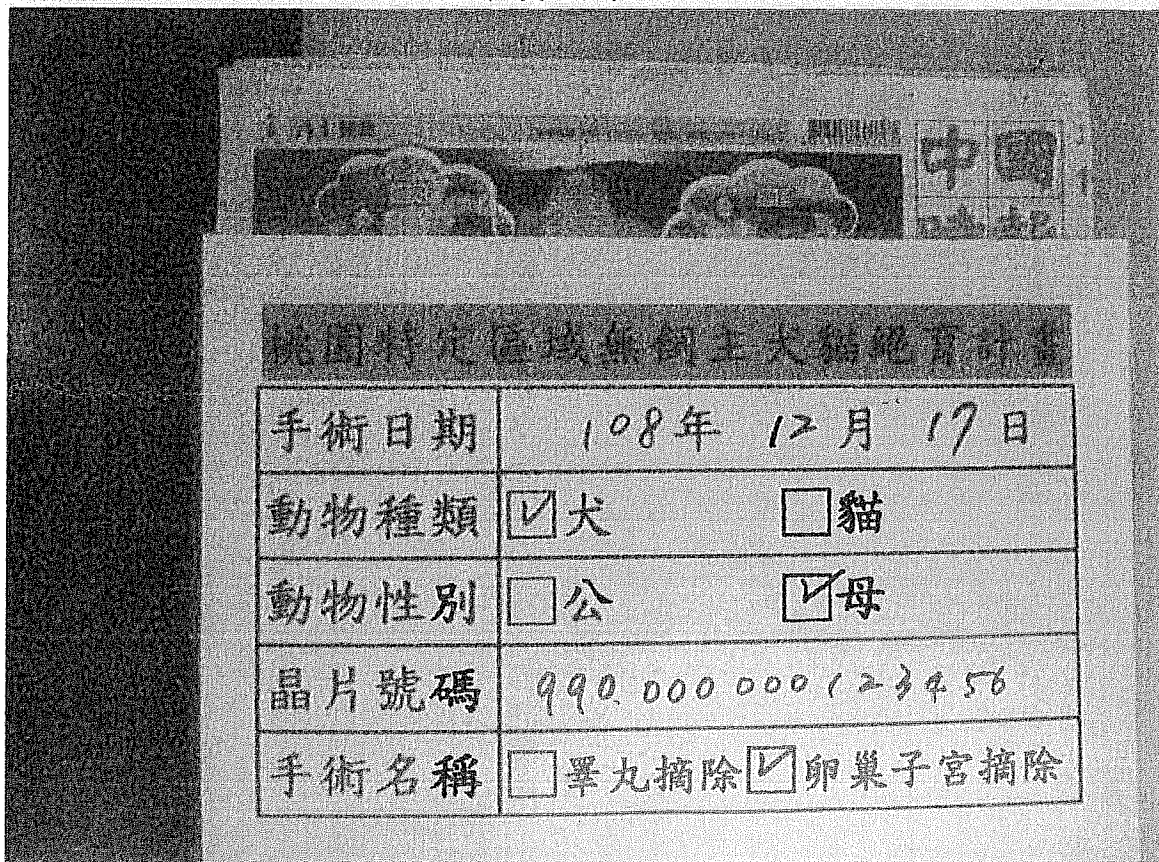 中國
時報
桃園特定區域無飼主犬貓絕育計畫
手術日期 108年 12月 17日
動物種類 ☑犬 ☐貓
動物性別 ☐公 ☑母
晶片號碼 990.000 000 123456
手術名稱 ☐睪丸摘除 ☑卵巢子宮摘除